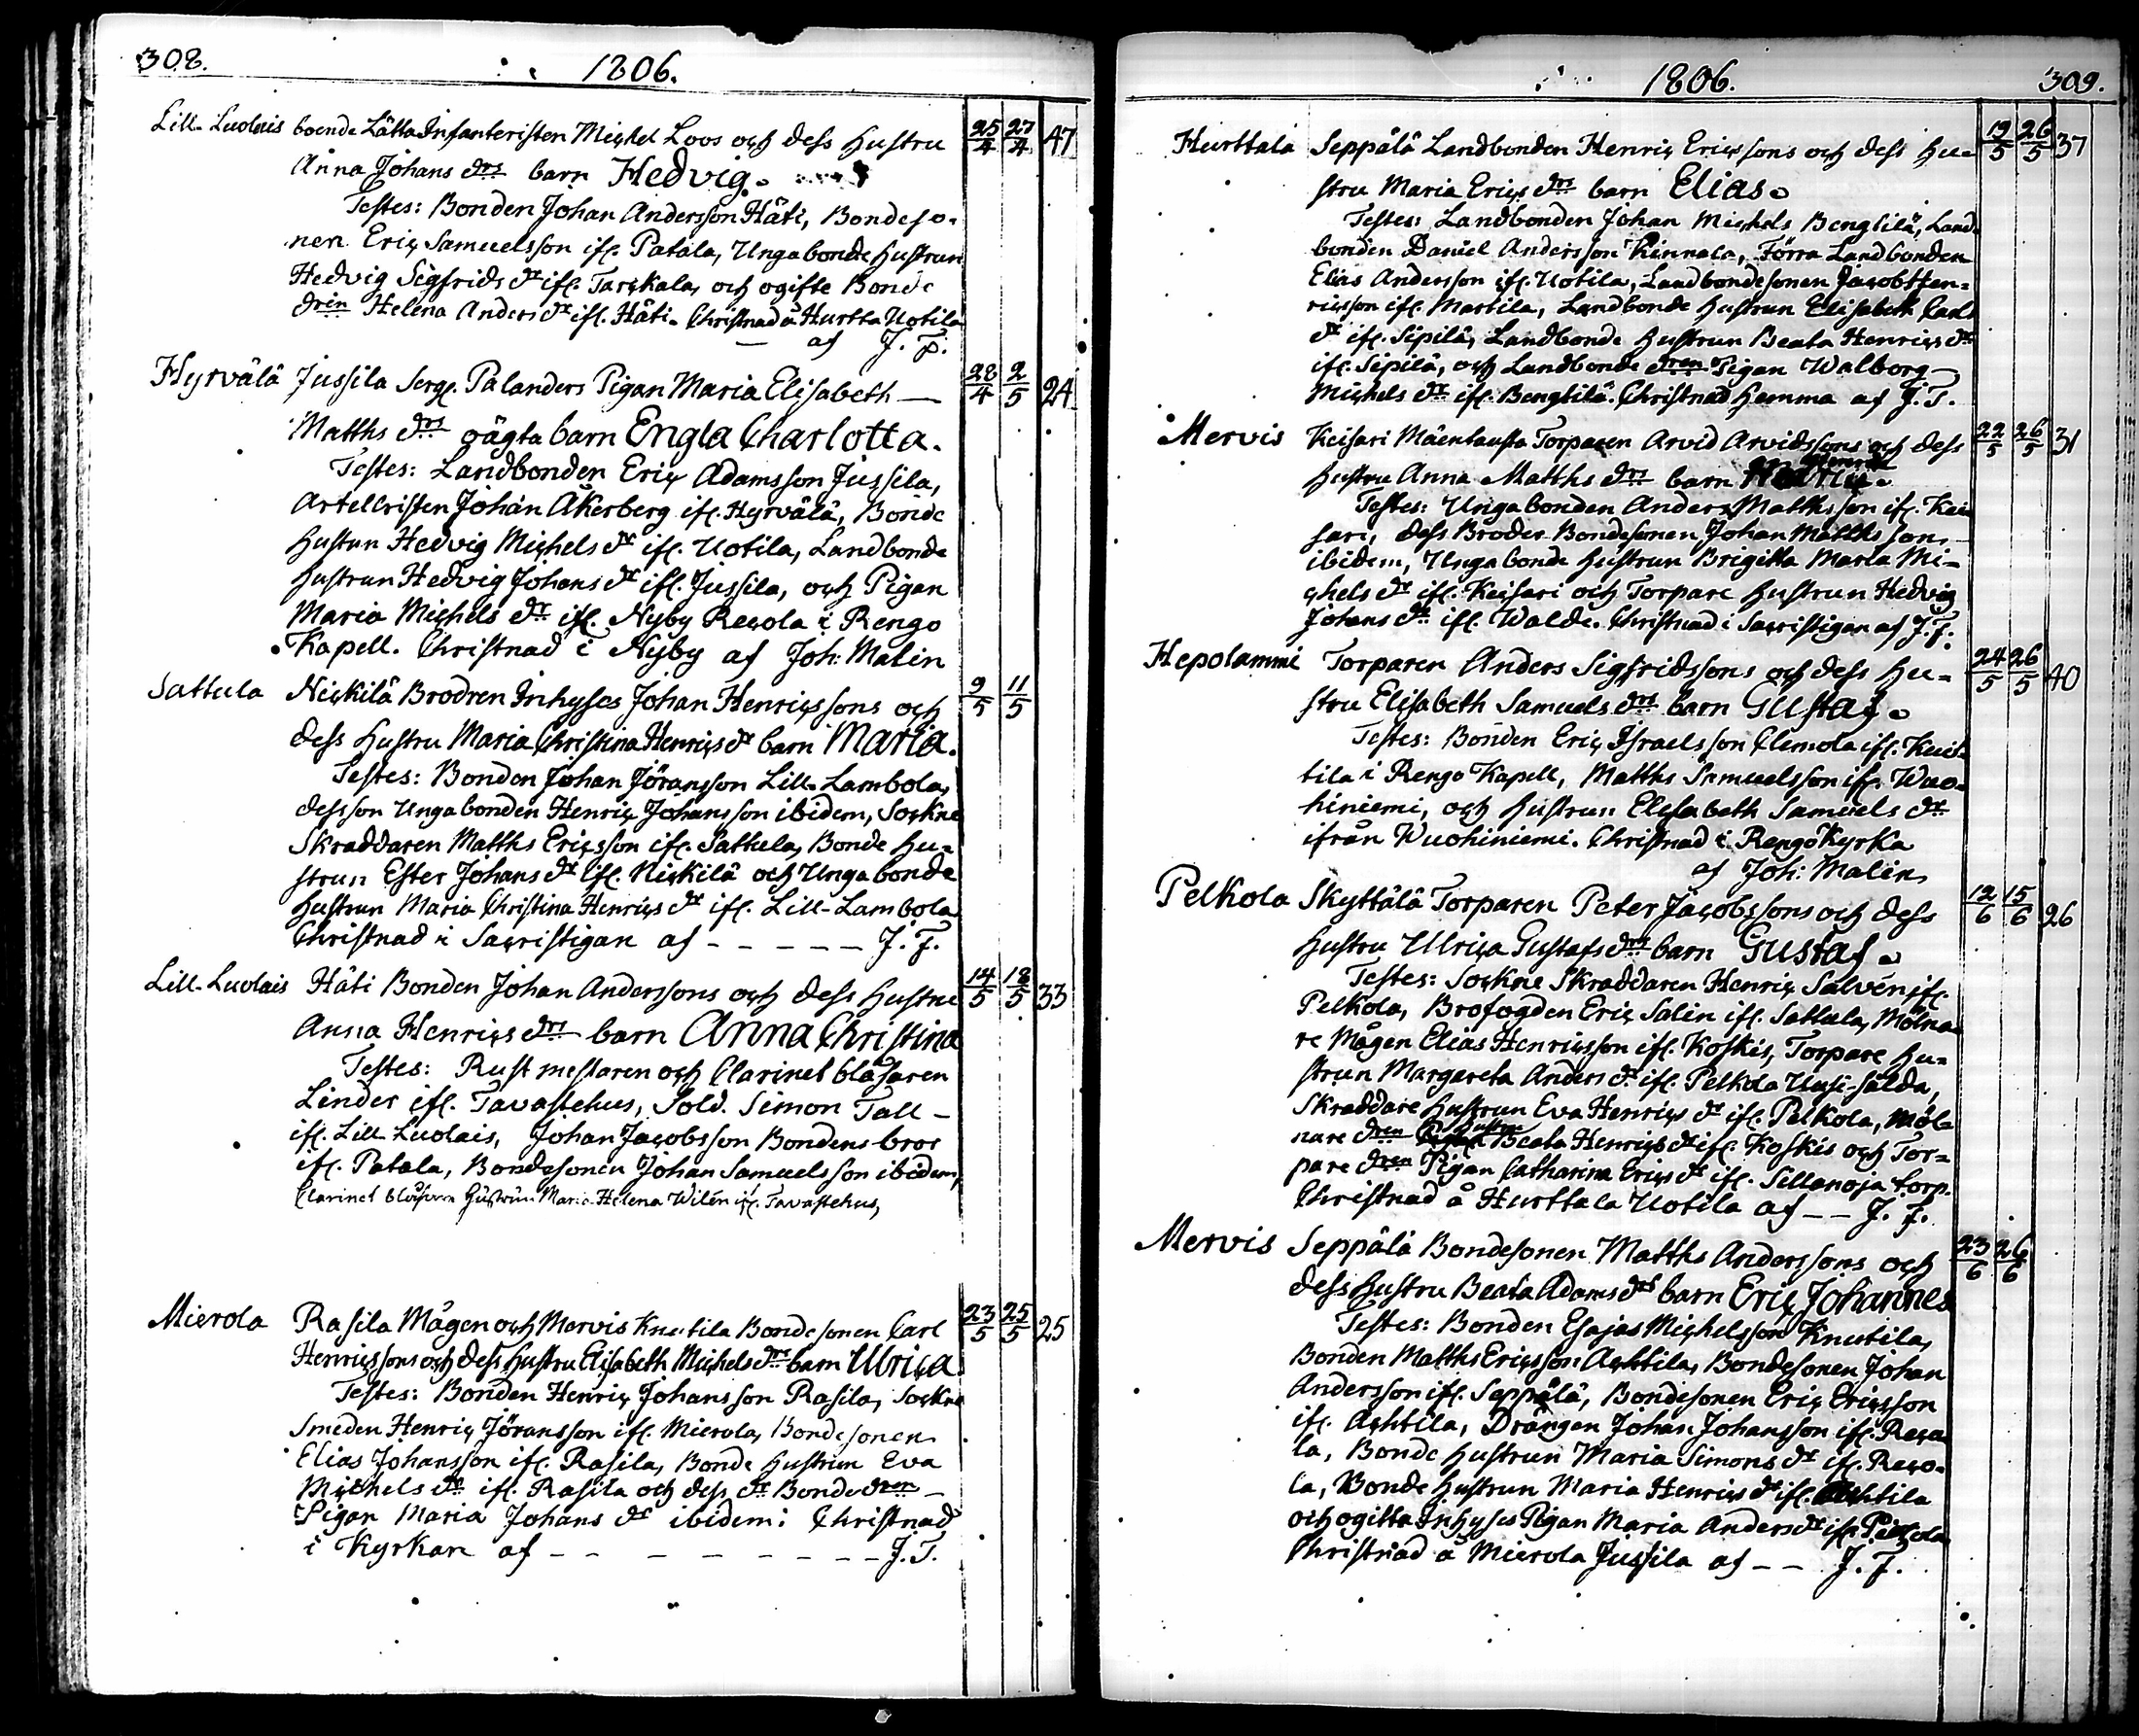 308.
1806.
Lill-Luolais boende Lätta Infanteristen Michel Loos och dess hustru 25/4 27/4 47
Anna Johans drs barn Hedvig.
Testes: Bonden Johan Andersson Häti, Bondeso-
nen Eric Samuelsson ifr. Patala, Unga bonde hustrun
Hedvig Sigfrids dr ifr. Tarckala, och ogifte Bonde
drin Helena Anders dr ifr. Häti. Christnad å Hurtta Uotila
af J. F.
Hyrvälä Jussila Serg. Palanders Pigan Maria Elisabeth 28/4 2/5 24
Matths drs oägta barn Engla Charlotta.
Testes: Landbonden Eric Adamsson Jussila,
Artelleristen Johan Åkerberg ifr. Hyrvälä, Bonde
hustun Hedvig Michels dr ifr. Uotila, Landbonde
hustrun Hedvig Johans dr ifr. Jussila, och Pigan
Maria Michels dr ifr. Nyby Recola i Rengo
Kapell. Christnad i Nyby af Joh: Malin
Sattula Nickilä Brodren Inhyses Johan Henricssons och 9/5 11/5
dess hustru Maria Christina Henrics dr barn Maria.
Testes: Bonden Johan Jöransson Lill-Lambola,
dess son Ungabonden Henric Johansson ibidem, Sockne
Skraddaren Matths Ericsson ifr. Sattula, Bonde hu-
strun Ester Johans dr ifr. Nickilä och Unga bonde
hustrun Maria Christina Henrics dr ifr. Lill-Lambola
Christnad i Sacristigan af - - - - - J. F.
Lill-Luolais Häti Bonden Johan Anderssons och dess hustru 14/5 18/5 33
Anna Henrics drs barn Anna Christina
Testes: Rustmestaren och Clarinet blåsaren
Linder ifr. Tavastehus, Sold. Simon Tall -
ifr. Lill-Luolais, Johan Jacobsson Bondens bror
ifr. Patala, Bondesonen Johan Samuelsson ibidem,
Clarinet blåsaren hustrun Maria Helena Wilén ifr. Tavastehus,
Mierola Rasila Mågen och Mervis Knutila Bondesonen Carl 23/5 25/5 25
Henricssons och dess hustru Elisabeth Michels drs barn Ulrica.
Testes: Bonden Henric Johansson Rasila, Sockne
Smeden Henric Jöransson ifr. Mierola, Bondesonen
Elias Johansson ifr. Rasila, Bonde hustrun Eva
Michels dr ifr. Rasila och dess dr Bonde dren -
Pigan Maria Johans dr ibidem: Christnad
i Kyrkan af - - - - - - - - J. F.
1806.
309.
Hurttala Seppälä Landbonden Henric Ericssons och dess hu- 19/5 26/5 37
stru Maria Erics drs barn Elias.
Testes: Landbonden Johan Michels Bengtilä, Land-
bonden Daniel Andersson Kinnala, Förra Landbonden
Elias Andersson ifr. Uotila, Landbondesonen Jacob Hen-
ricsson ifr. Martila, Landbonde hustrun Elisabeth Carls
dr ifr. Sipilä, Landbonde hustrun Beata Henrics dr
ifr. Sipilä, och Landbonde dren Pigan Walborg
Michels dr ifr. Bengtilä. Christnad hemma af J. F.
Mervis Keisari Mäenlausta Torparen Arvid Arvidssons och dess 22/5 26/5 31
hustru Anna Matths drs barn
Testes: Ungabonden Anders Mathsson ifr. Kei-
sari, dess Broder Bondesonen Johan Mattsson,
ibidem, Unga bonde hustrun Brigitta Maria Mi-
chels dr ifr. Keisari och Torpare hustrun Hedvig
Johans dr ifr. Walde. Christnad i Sacristigan af J. F.
Hepolammi Torparen Anders Sigfridssons och dess hu- 24/5 26/5 40
stru Elisabeth Samuels drs barn Gustaf.
Testes: Bonden Eric Israelsson Clemola ifr. Kuit-
tila i Rengo Kapell, Matths Samuelsson ifr. Wuo-
hiniemi, och hustrun Elisabeth Samuels dr
ifrån Wuohiniemi. Christnad i Rengo Kyrka
af Joh: Malin
Pelkola Skyttälä Torparen Peter Jacobssons och dess 12/6 15/6 26
hustru Ulrica Gustafs drs barn Gustaf.
Testes: Sockne Skraddaren Henric Salvén ifr.
Pelkola, Brofogden Eric Salin ifr. Sattula, Mölna-
re Mågen Elias Henricsson ifr. Koskis, Torpare hu-
strun Margareta Anders dr ifr. Pelkola Uusi-sälda,
Skraddare hustrun Eva Henrics dr ifr. Pelkola, Möl-
nare dren hustru Beata Henrics dr ifr. Koskis och Tor-
pare dren Pigan Catharina Erics dr ifr. Sillanoja torp.
Christnad å Hurttala Uotila af - - J. F.
Mervis Seppälä Bondesonen Matths Anderssons och 23/6 26/6
dess hustru Beata Adams drs barn Eric Johannes
Testes: Bonden Esajas Michelsson Knutila,
Bonden Matths Ericsson Achtila, Bondesonen Johan
Andersson ifr. Seppälä, Bondesonen Eric Ericsson
ifr. Achtila, Drängen Johan Johansson ifr. Reco-
la, Bonde hustrun Maria Simons dr ifr. Reco-
la, Bonde hustrun Maria Henrics dr ifr. Achtila
och ogifta Inhyses Pigan Maria Anders dr ifr. Pelkola
Christnad å Mierola Jussila af - - J. F.